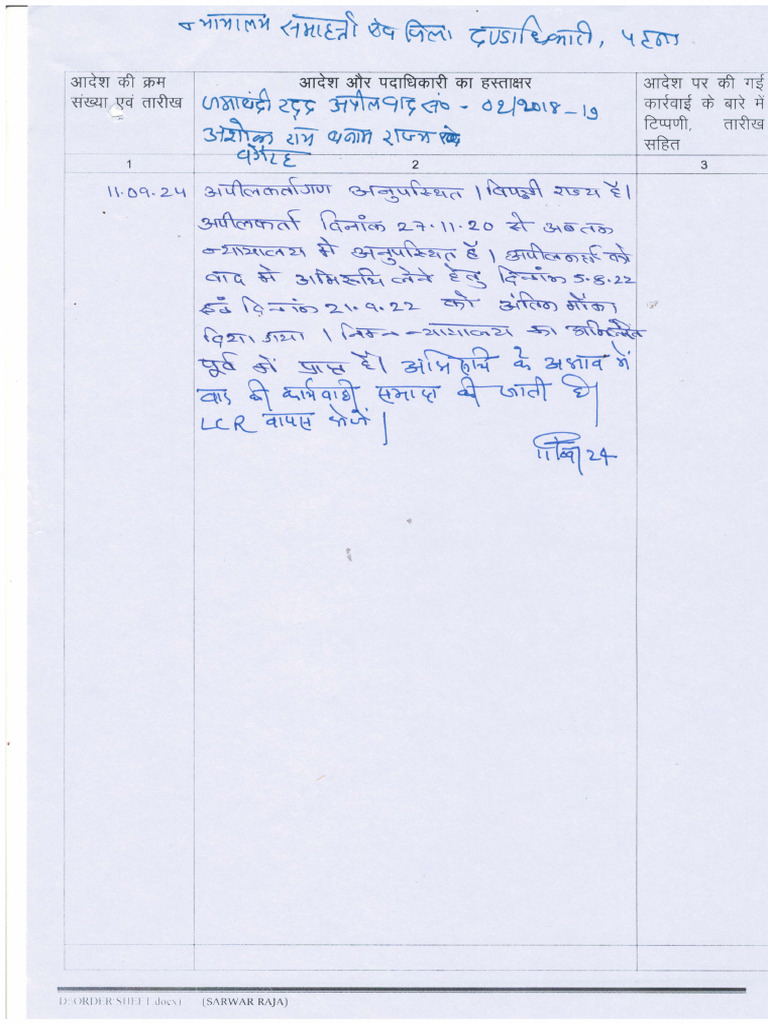 न्यायालय समाहर्त्ता एवं जिला दण्डाधिकारी, पटना
आदेश की क्रम संख्या एवं तारीख
आदेश और पदाधिकारी का हस्ताक्षर
जमाबंदी रद्द अपीलवाद सं० - 02/2018-19
अशोक राम बनाम राज्य एवं
वगैरह
आदेश पर की गई कार्रवाई के बारे में टिप्पणी, तारीख सहित
1 2 3
11.09.24 अपीलकर्तागण अनुपस्थित । विपक्षी राज्य है।
अपीलकर्ता दिनांक 27.11.20 से अबतक
न्यायालय मे अनुपस्थित है। अपीलकर्ता को
वाद मे अभिरूचि लेने हेतु दिनांक 5.8.22
एवं दिनांक 21.9.22 को अंतिम मौका
दिया गया । निम्न न्यायालय का अभिलेख
पूर्व में प्राप्त है। अभिरूचि के अभाव में
वाद की कार्यवाही समाप्त की जाती है।
LCR वापस भेजें।
24
D:\ORDER SHEET.docx) (SARWAR RAJA)